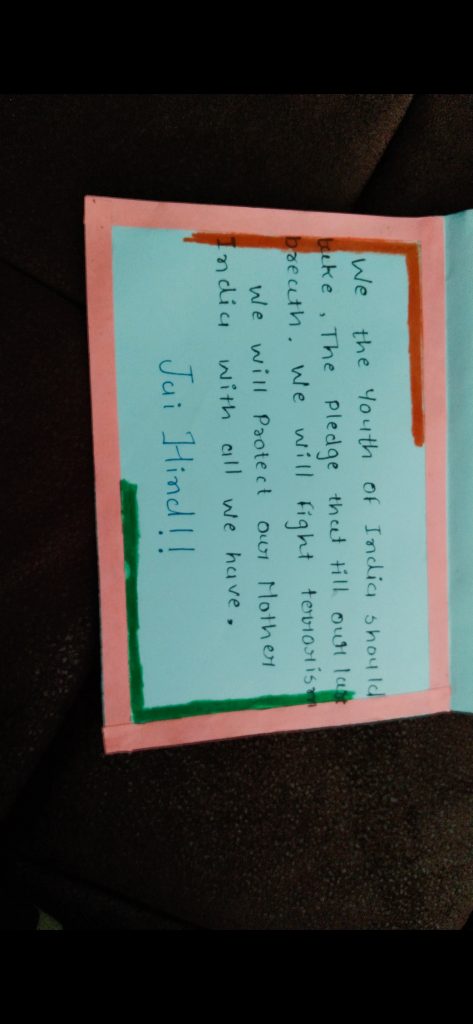 We the Youth of India should
take, The pledge that till our last
breath. We will fight terrorism
We will Protect our Mother
India with all we have.
Jai Hind!!